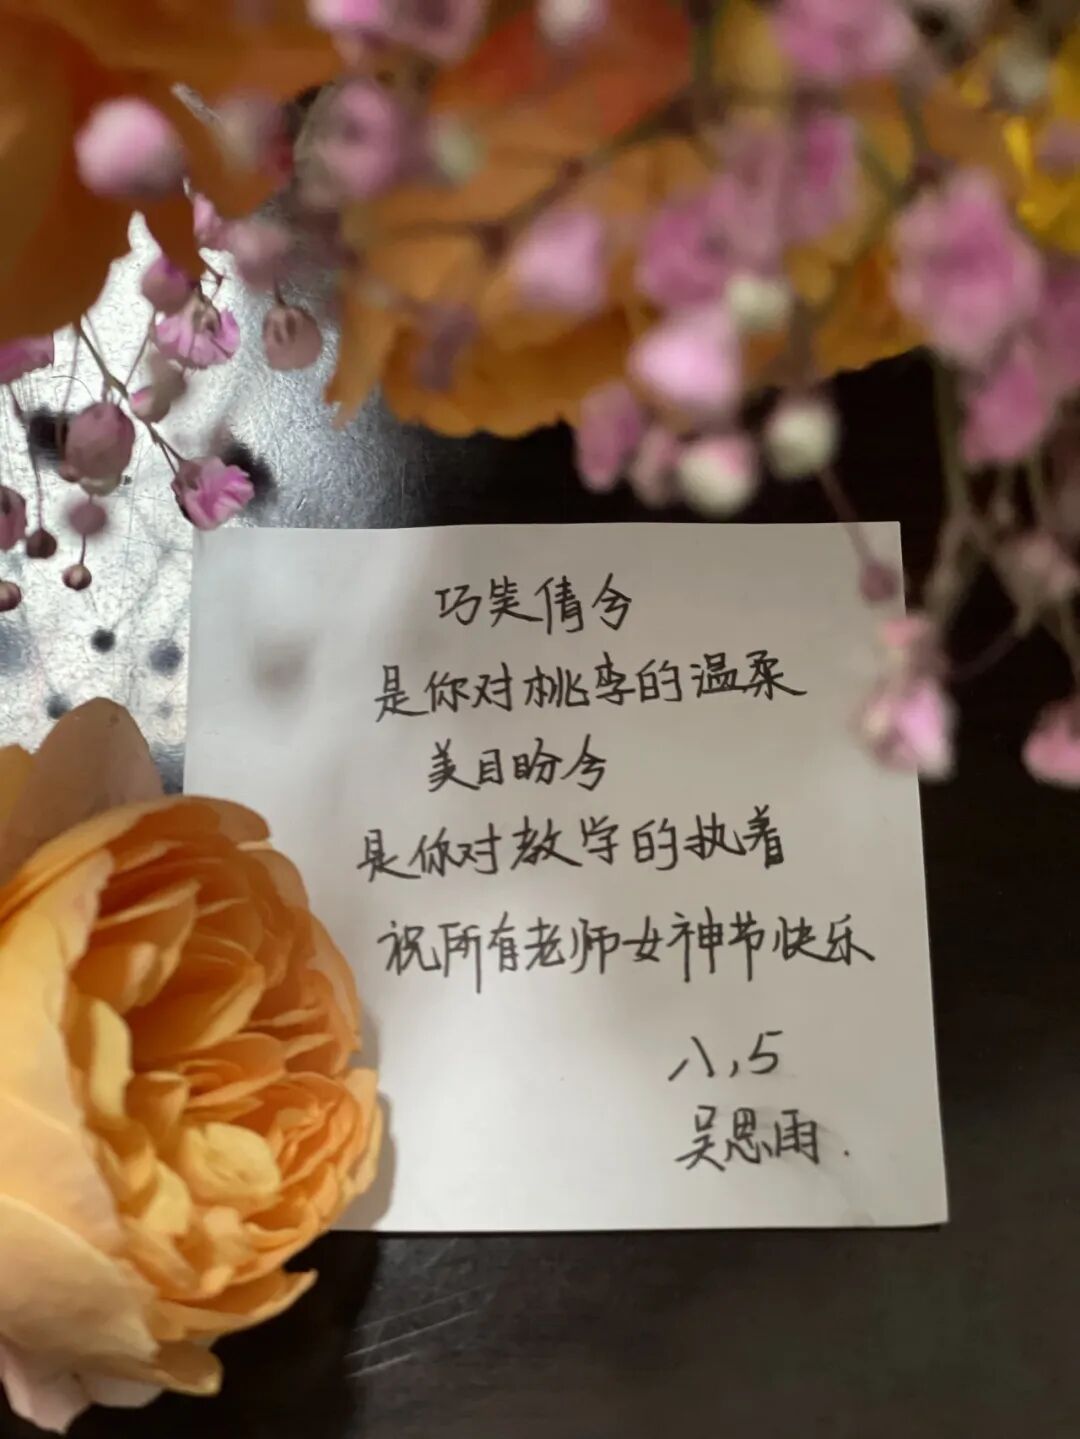 巧笑倩兮
是你对桃李的温柔
美目盼兮
是你对教学的执着
祝所有老师女神节快乐
八,5
吴思雨.